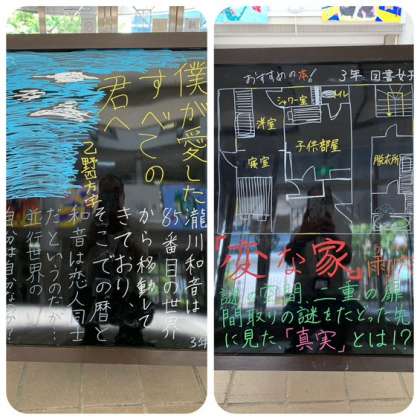 僕が愛した
すべての
君へ
乙野四方字
瀧川和音は
85番目の世界
から移動して
きており、
そこでの暦と
和音は恋人同士
だというのだが…
並行世界の
3年
おすすめの本！
3年 図書女子
シャワー室
トイレ
洋室
子供部屋
寝室
脱衣所
「変な家」雨穴
謎の空間、二重の扉
間取りの謎をたどった先
に見た「真実」とは!?